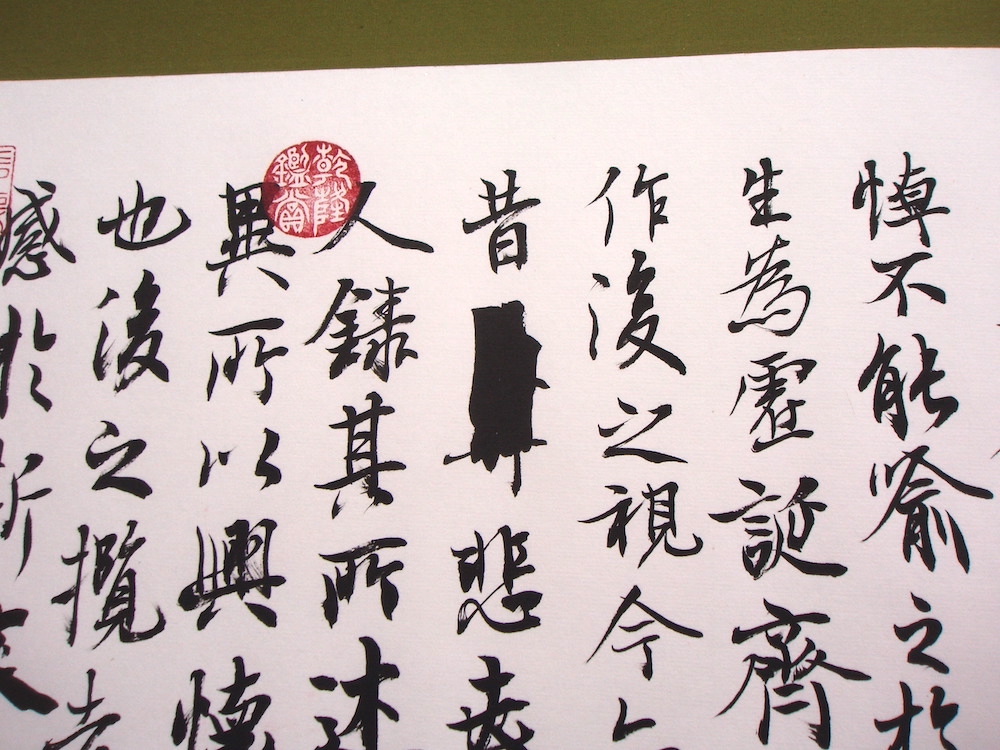 悼不能喻之於
生為虛誕齊
作後之視今
昔悲夫
人錄其所述
異所以興懷
也後之攬者
感於斯文
乾隆鑑賞